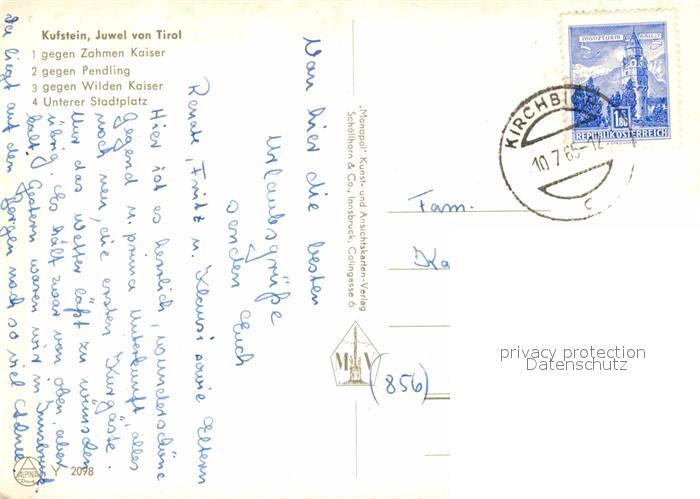 Kufstein, Juwel von Tirol
1 gegen Zahmen Kaiser
2 gegen Pendling
3 gegen Wilden Kaiser
4 Unterer Stadtplatz
Von hier die besten
Urlaubsgrüße
senden Euch
Renate, Fritz u. Klausi sowie Eltern
Hier ist es herrlich, wunderschöne
Gegend u. prima Unterkunft, alles
noch neu, die ersten Kurgäste.
Nur das Wetter läßt zu wünschen
übrig. Es hält zwar von oben, aber
kalt. Gestern waren wir in Innsbruck
da liegt auf den Bergen noch so viel Schnee
"Monopol" Kunst- und Ansichtskarten-Verlag
Schöllhorn & Co., Innsbruck, Colingasse 6
M V
MÜNZTURM HALL I.T.
1.80
REPUBLIK ÖSTERREICH
KIRCHBICHL
10.7.65-12
c
Fam.
Ka
(856)
privacy protection
Datenschutz
ALPINA
Druck
Y 2098